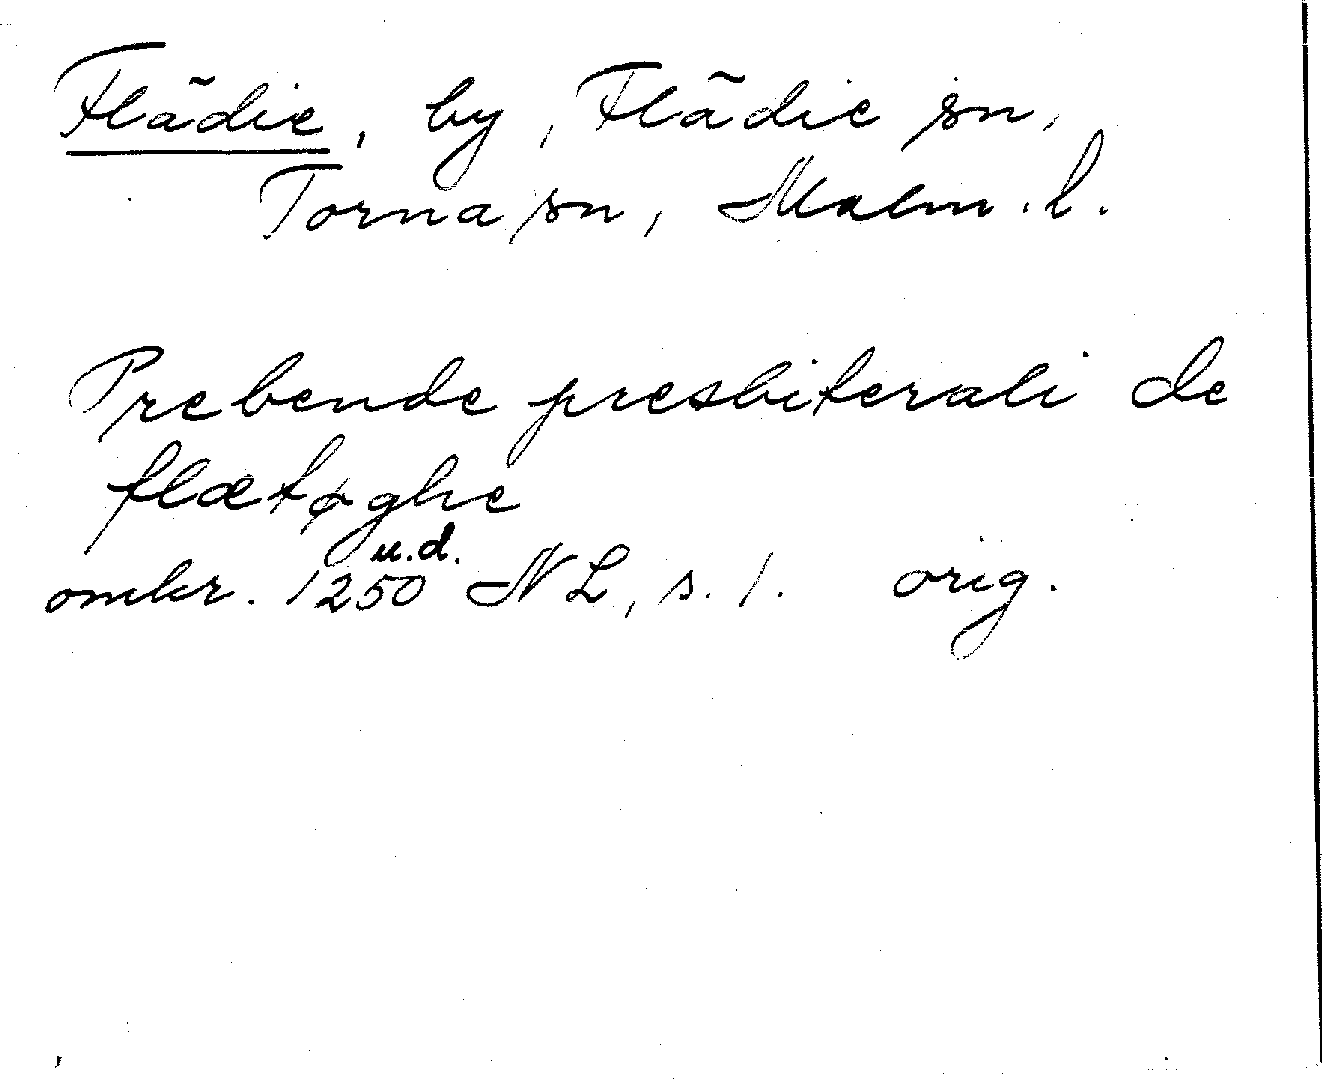 Flädie, by, Flädie sn,
Torna sn, Malm. l.
Prebende presbiterali de
flætøghe
u.d.
omkr. 1250 NL, s. 1. orig.